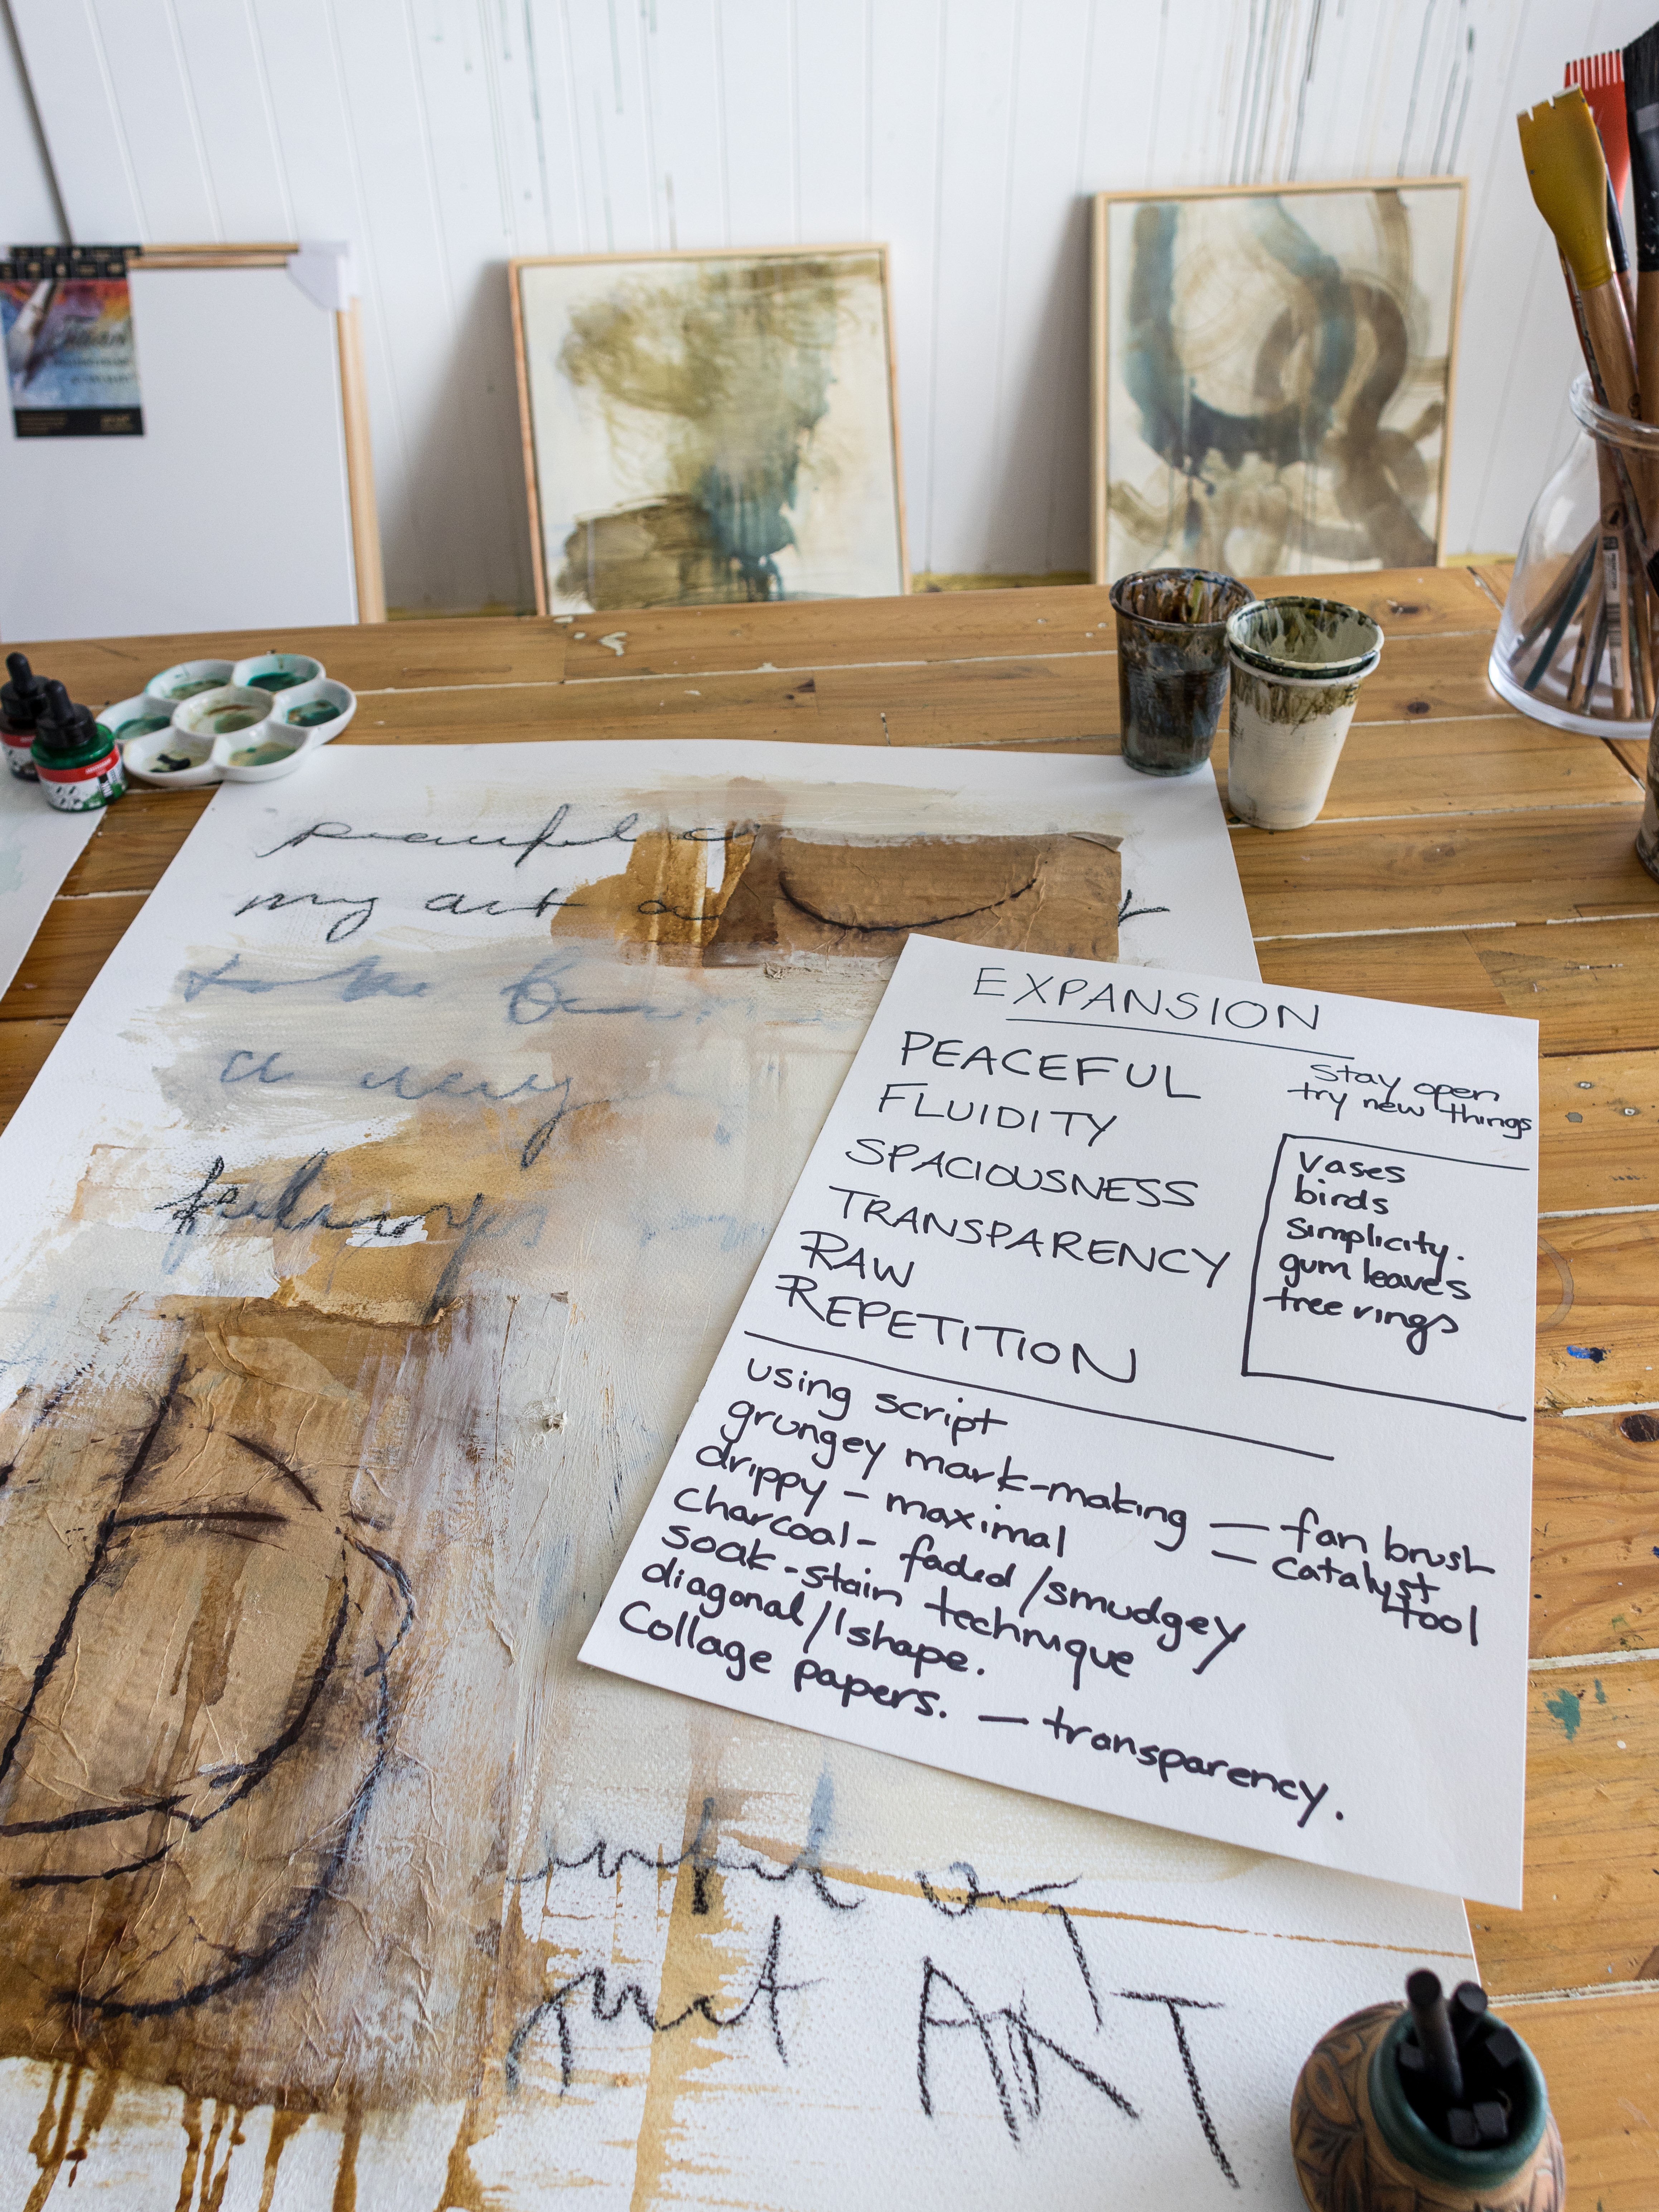 peaceful
my art
a very
feelings
EXPANSION
PEACEFUL
FLUIDITY
SPACIOUSNESS
TRANSPARENCY
RAW
REPETITION
stay open
try new things
vases
birds
simplicity.
gum leaves
tree rings
using script
grungey mark-making — fan brush
— catalyst tool
drippy - maximal
charcoal - faded/smudgey
soak-stain technique
diagonal/l shape.
Collage papers. — transparency.
just ART